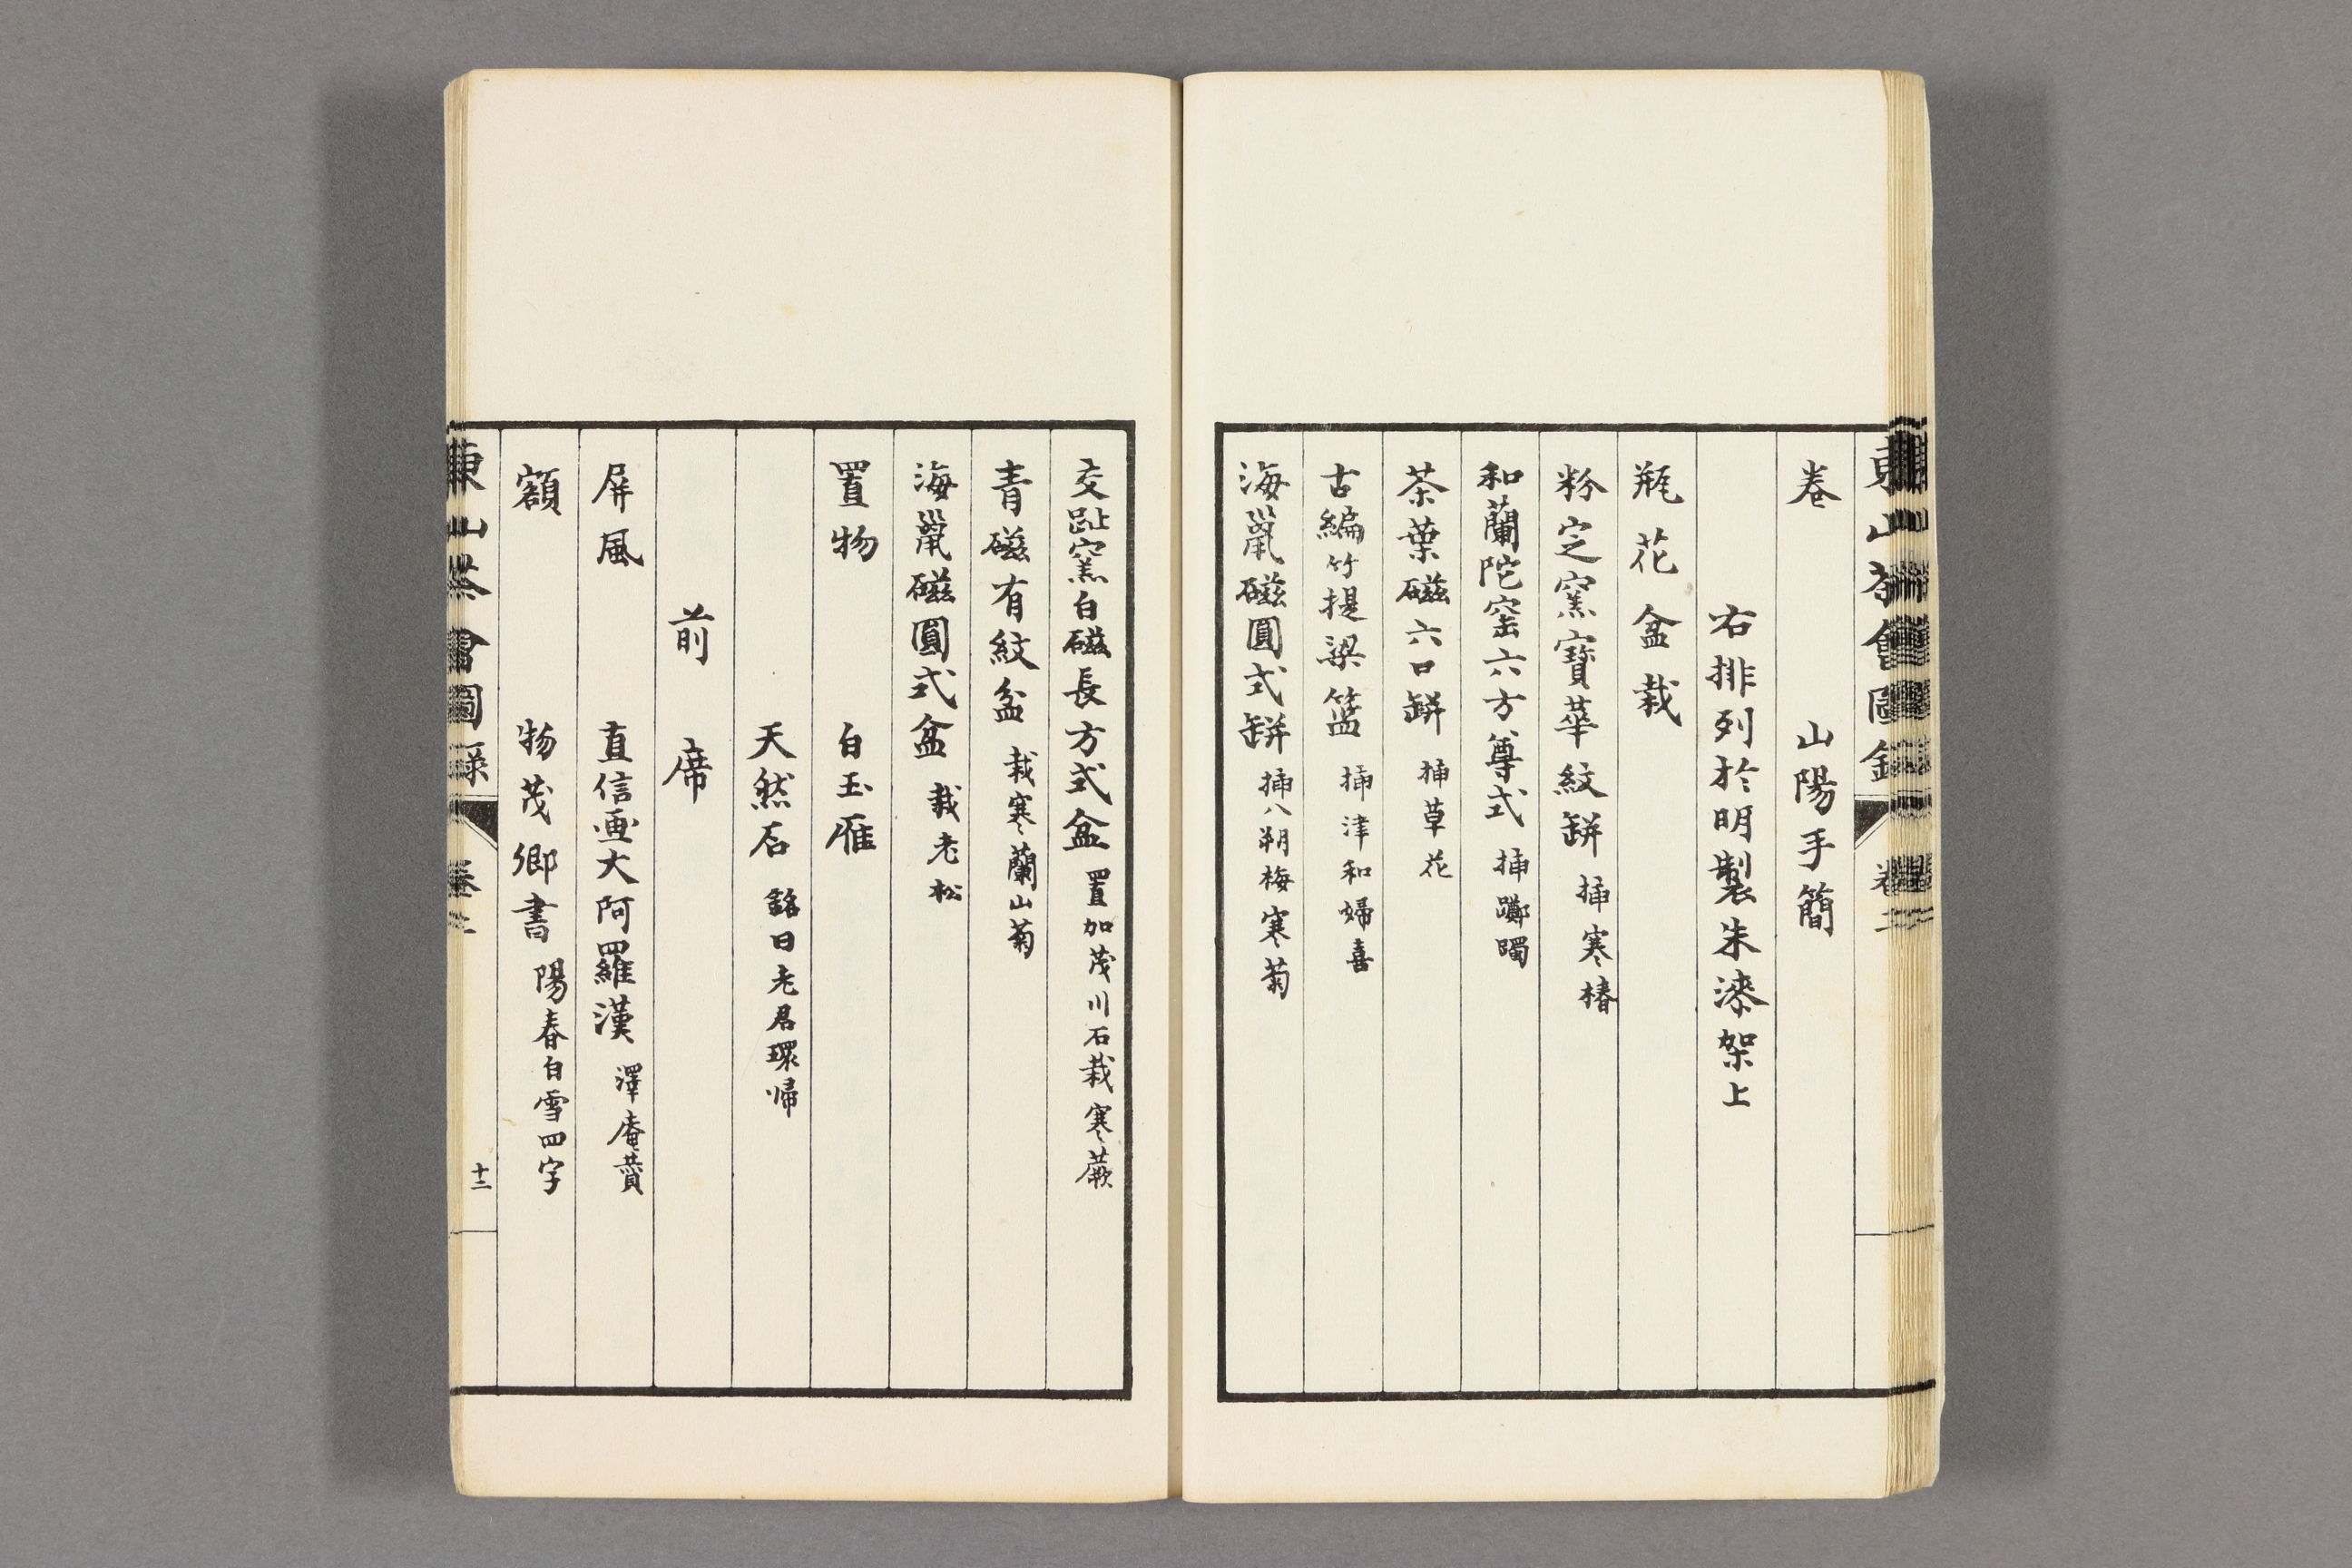 東山茶會圖錄 卷二
卷 山陽手簡
右排列於明製朱漆架上
瓶花盆栽
粉定窯寶華紋缾 揷寒椿
和蘭陀窑六方尊式 揷躑躅
茶葉磁六口缾 揷草花
古編竹提梁籃 揷津和婦喜
海鼠磁圓式缾 揷八朔梅寒菊
交趾窯白磁長方式盆 置加茂川石栽寒蕨
青磁有紋盆 栽寒蘭山菊
海鼠磁圓式盆 栽老松
置物 白玉雁
天然石 銘曰老君環帰
前席
屏風 直信画大阿羅漢 澤庵賛
額 物茂卿書 陽春白雪四字
東山茶會圖錄 卷二 十二